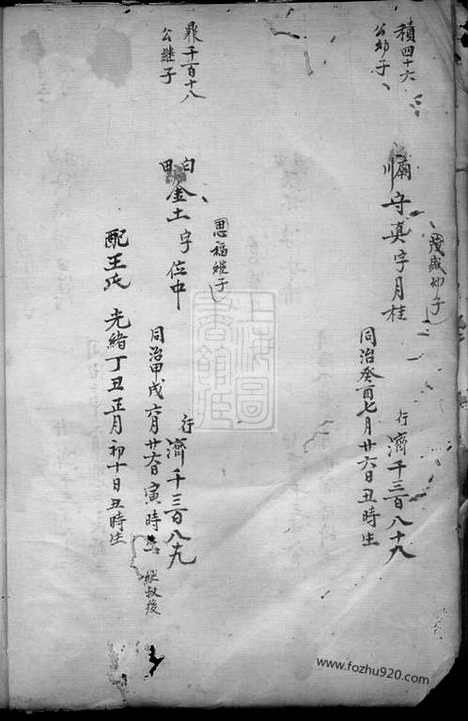 積四十六
公幼子
守真字月桂
茂盛幼子
行濟千三百八十九
同治癸酉七月廿六日丑時生
鼎千百十八
公繼子
金土字位中
思福繼子
行濟千三百八十九
同治甲戌六月廿六日寅時生
継叔後
配王氏
光緒丁丑正月初十日丑時生
上海圖書館藏
www.fozhu920.com